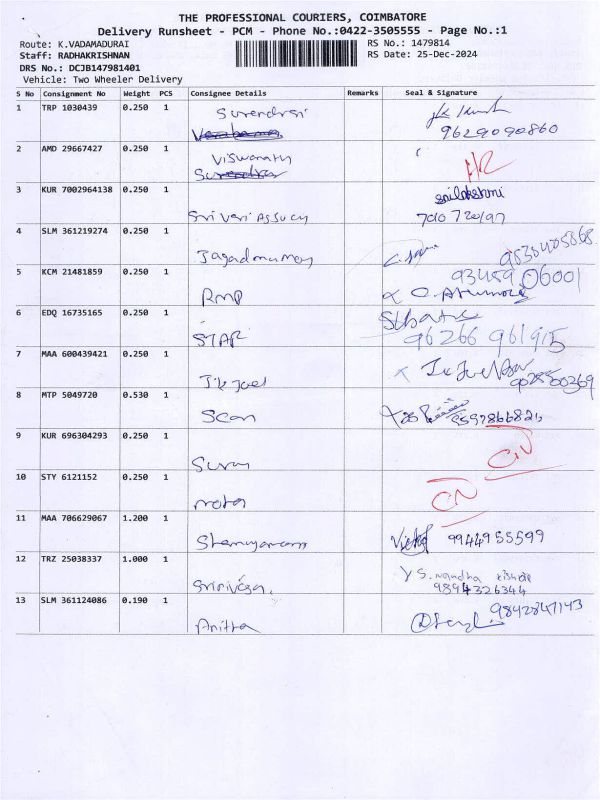 THE PROFESSIONAL COURIERS, COIMBATORE
Delivery Runsheet - PCM - Phone No.:0422-3505555 - Page No.:1
Route: K.VADAMADURAI RS No.: 1479814
Staff: RADHAKRISHNAN RS Date: 25-Dec-2024
DRS No.: DCJB147981401
Vehicle: Two Wheeler Delivery
S No Consignment No Weight PCS Consignee Details Remarks Seal & Signature
1 TRP 1030439 0.250 1
9629090860
2 AMD 29667427 0.250 1 Viswanath
3 KUR 7002964138 0.250 1 Srivari Assocy Srilakshmi
4 SLM 361219274 0.250 1
5 KCM 21481859 0.250 1 RMP 93459 06001
6 EDQ 16735165 0.250 1 STAR
96266 961915
7 MAA 600439421 0.250 1 J.k Joel
8 MTP 5049720 0.530 1 Scan
9 KUR 696304293 0.250 1
10 STY 6121152 0.250 1
11 MAA 706629067 1.200 1 9944955599
12 TRZ 25038337 1.000 1 Srinivasa. Y S. nandha kishore
9894326344
13 SLM 361124086 0.190 1 Anitha 9842847143